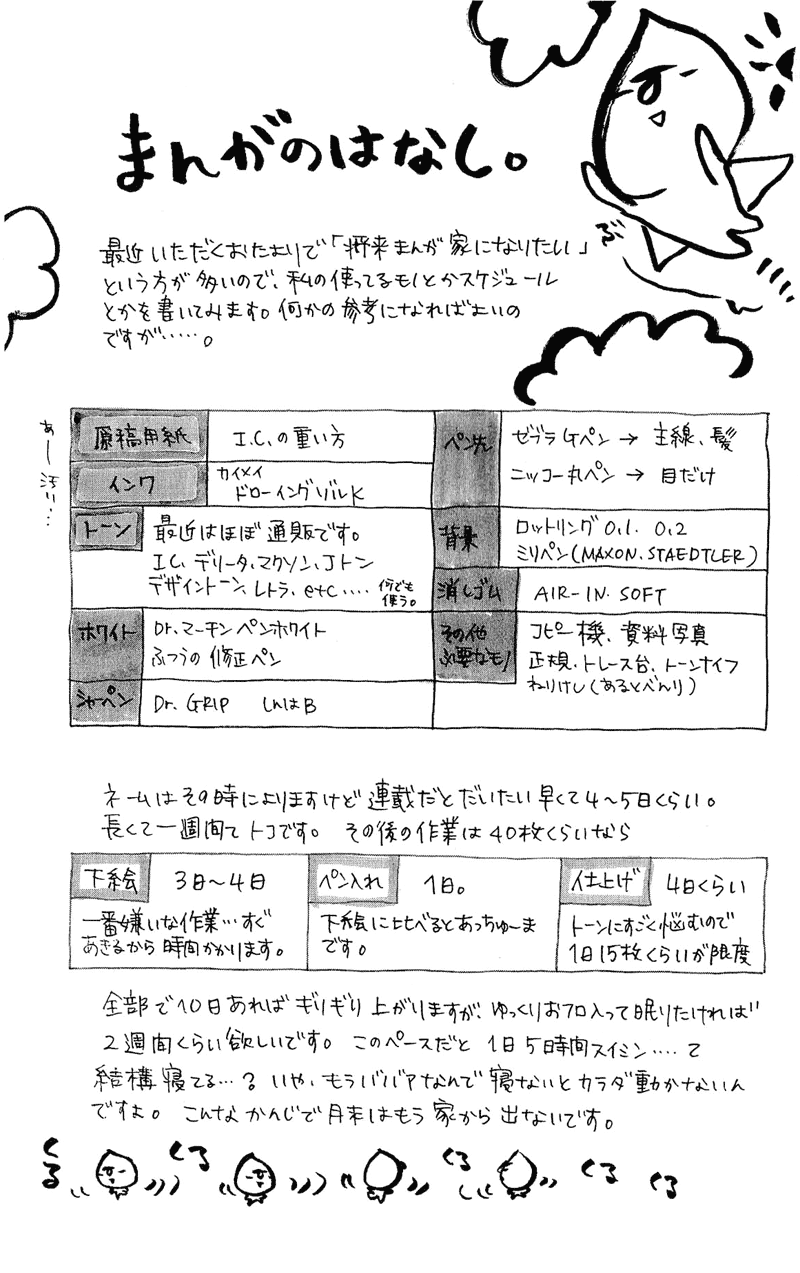 まんがのはなし。
ぶ
最近いただくおたよりで「将来まんが家になりたい」
という方が多いので、私の使ってるモノとかスケジュール
とかを書いてみます。何かの参考になればよいの
ですが……。
あー汚い…
原稿用紙 I.C.の重い方
インク カイメイ
ドローイングゾルK
トーン 最近はほぼ通販です。
I.C. デリータ、マクソン、Jトン
デザイントーン、レトラ、etc…. 何でも
使う。
ホワイト Dr.マーチンペンホワイト
ふつうの修正ペン
シャーペン Dr. GRIP しんはB
ペン先 ゼブラGペン → 主線、髪
ニッコー丸ペン → 目だけ
背景 ロットリング 0.1. 0.2
ミリペン(MAXON. STAEDTLER)
消しゴム AIR-IN. SOFT
その他 コピー機、資料写真
必要なモノ 正規、トレース台、トーンナイフ
ねりけし(あるとべんり)
ネームはその時によりますけど連載だとだいたい早くて4〜5日くらい。
長くて一週間てトコです。 その後の作業は40枚くらいなら
下絵 3日〜4日
一番嫌いな作業…すぐ
あきるから時間かかります。
ペン入れ 1日。
下絵に比べるとあっちゅーま
です。
仕上げ 4日くらい
トーンにすごく悩むので
1日15枚くらいが限度
全部で10日あればギリギリ上がりますが、ゆっくりお風呂入って眠りたければ
2週間くらい欲しいです。 このペースだと 1日5時間スイミン….て
結構寝てる…? いや、もうババアなんで寝ないとカラダ動かないん
ですよ。 こんなかんじで月末はもう家から出ないです。
くる
くる
くる
くる
くる